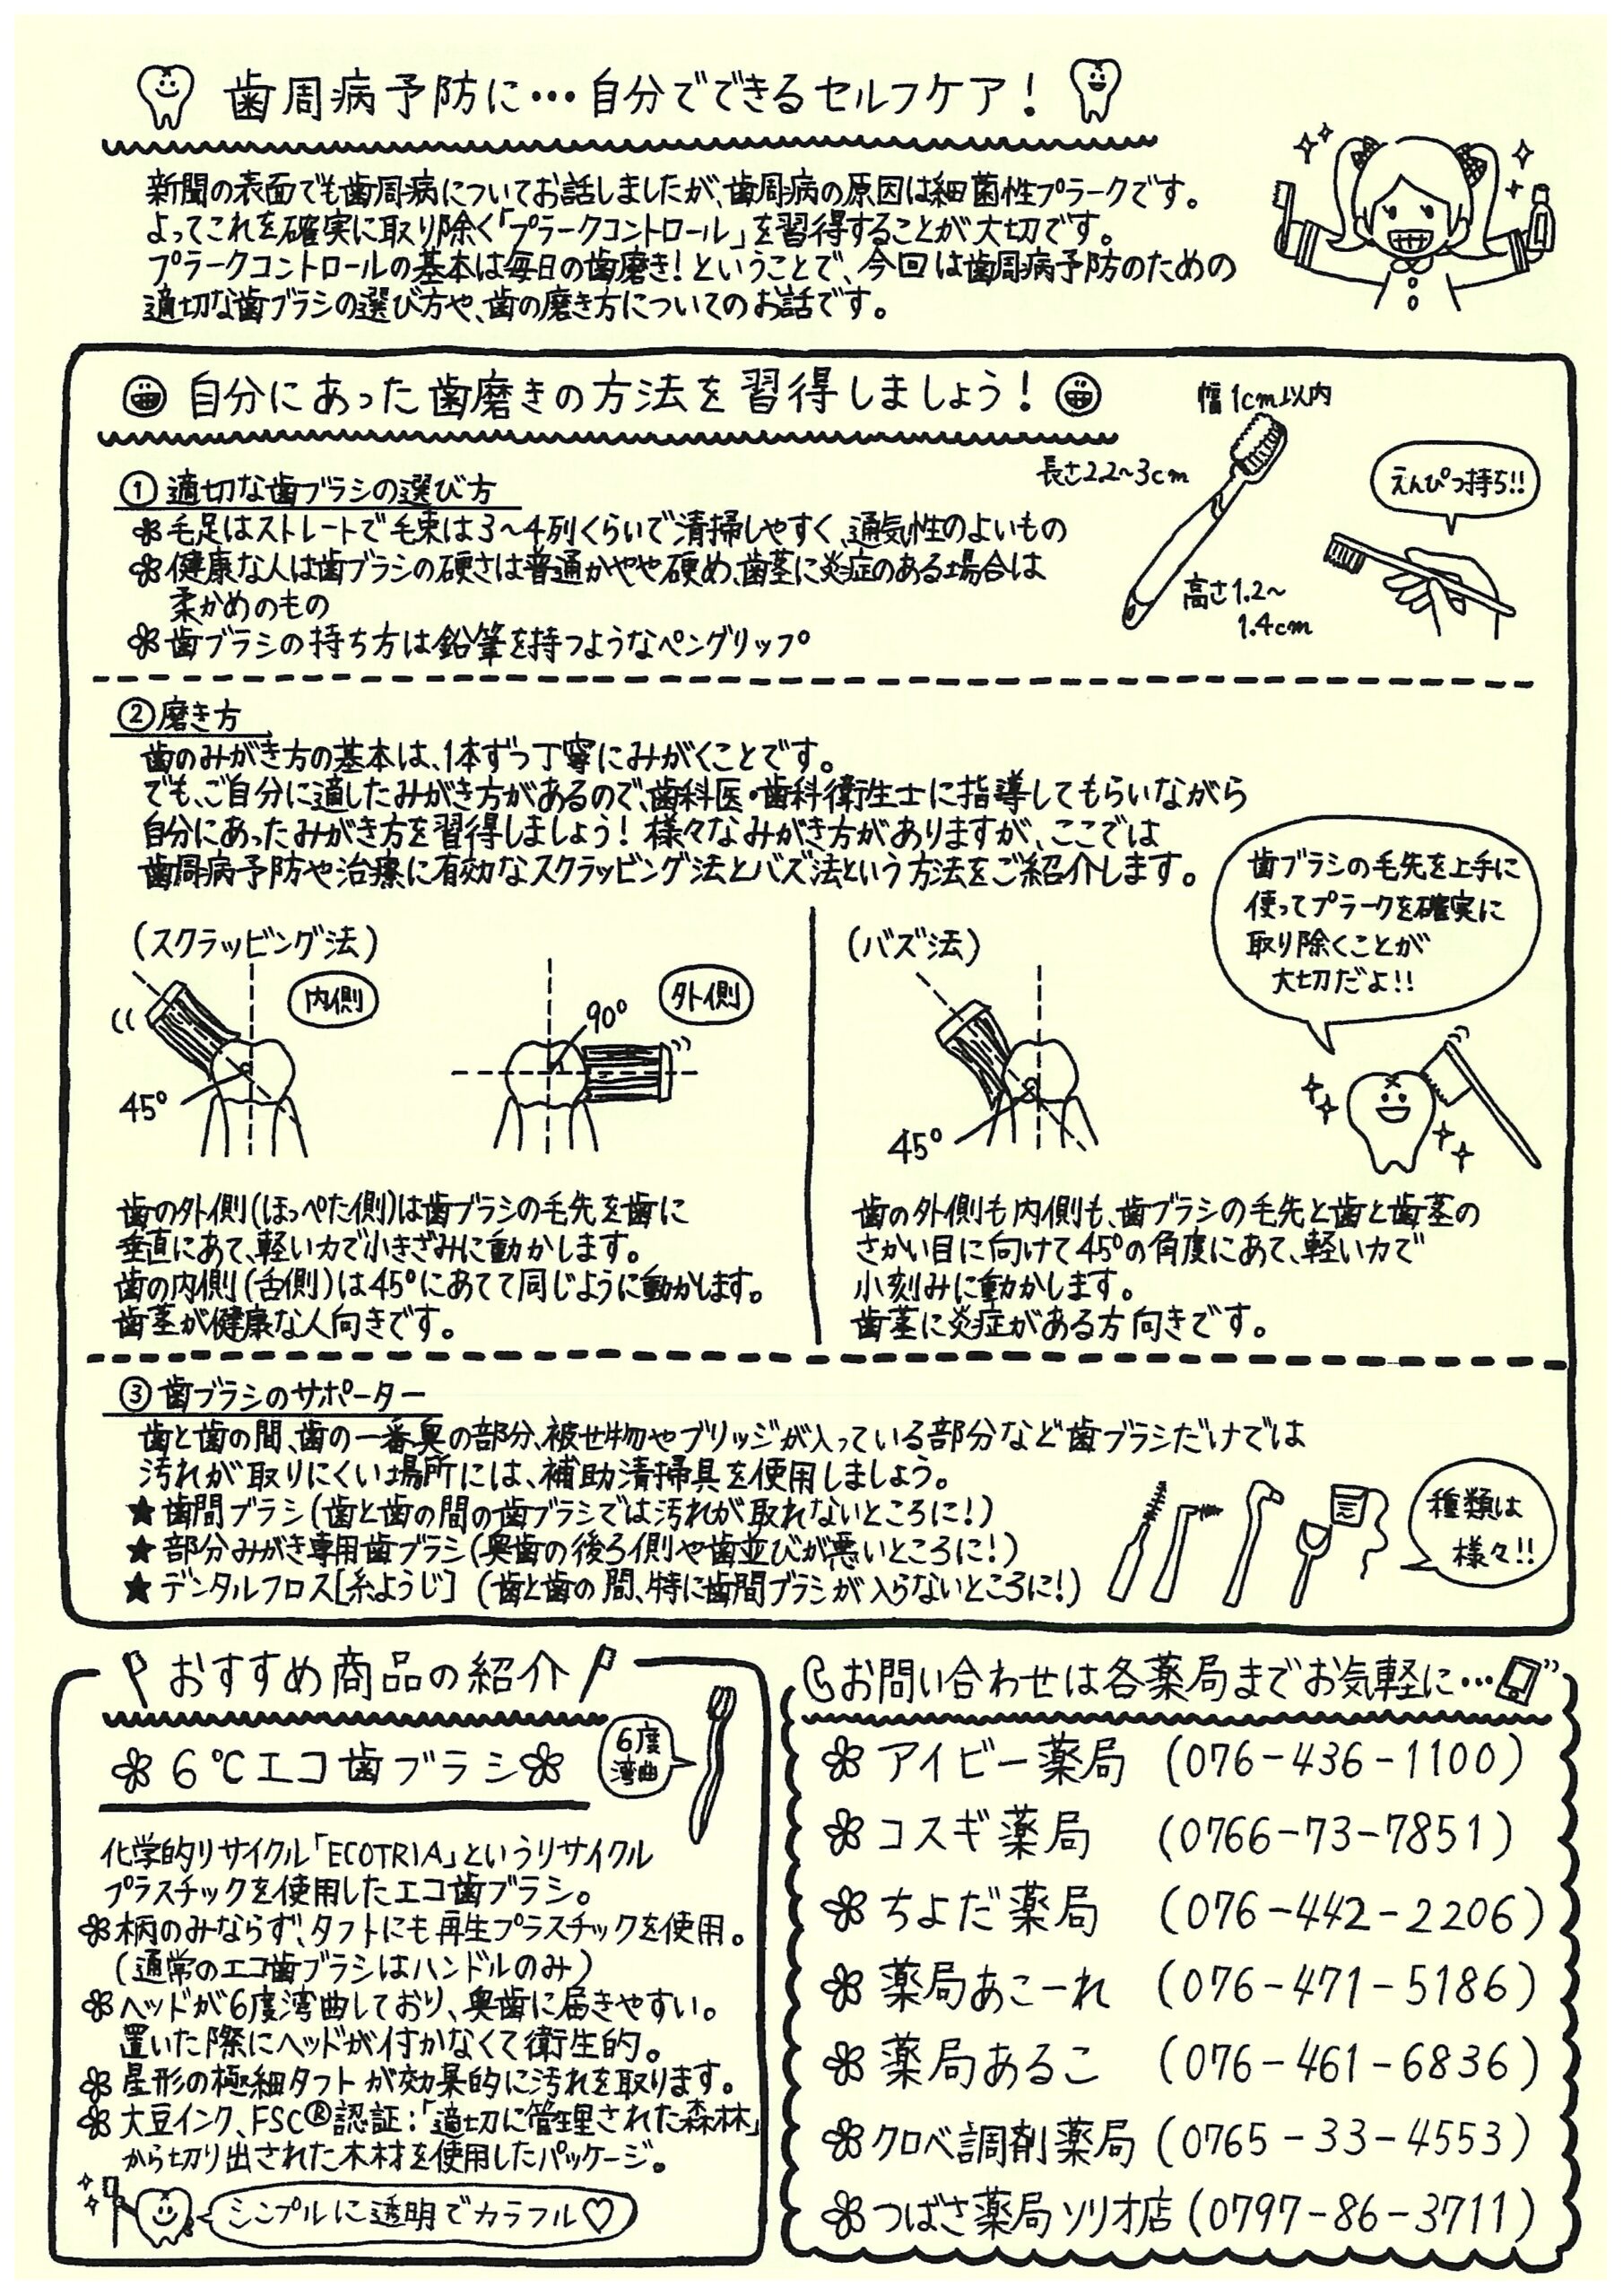 歯周病予防に…自分でできるセルフケア！
新聞の表面でも歯周病についてお話しましたが、歯周病の原因は細菌性プラークです。
よってこれを確実に取り除く「プラークコントロール」を習得することが大切です。
プラークコントロールの基本は毎日の歯磨き！ということで、今回は歯周病予防のための
適切な歯ブラシの選び方や、歯の磨き方についてのお話です。
自分にあった歯磨きの方法を習得しましょう！
幅1cm以内
長さ2.2～3cm
高さ1.2～
1.4cm
えんぴつ持ち!!
①適切な歯ブラシの選び方
毛足はストレートで毛束は3～4列くらいで清掃しやすく、通気性のよいもの
健康な人は歯ブラシの硬さは普通かやや硬め、歯茎に炎症のある場合は
柔かめのもの
歯ブラシの持ち方は鉛筆を持つようなペングリップ。
②磨き方
歯のみがき方の基本は、1本ずつ丁寧にみがくことです。
でも、ご自分に適したみがき方があるので、歯科医・歯科衛生士に指導してもらいながら
自分にあったみがき方を習得しましょう！様々なみがき方がありますが、ここでは
歯周病予防や治療に有効なスクラッビング法とバズ法という方法をご紹介します。
歯ブラシの毛先を上手に
使ってプラークを確実に
取り除くことが
大切だよ!!
(スクラッビング法)
内側
45°
90°
外側
(バズ法)
45°
歯の外側(ほっぺた側)は歯ブラシの毛先を歯に
垂直にあて、軽い力で小きざみに動かします。
歯の内側(舌側)は45°にあてて同じように動かします。
歯茎が健康な人向きです。
歯の外側も内側も、歯ブラシの毛先と歯と歯茎の
さかい目に向けて45°の角度にあて、軽い力で
小刻みに動かします。
歯茎に炎症がある方向きです。
③歯ブラシのサポーター
歯と歯の間、歯の一番奥の部分、被せ物やブリッジが入っている部分など歯ブラシだけでは
汚れが取りにくい場所には、補助清掃具を使用しましょう。
★歯間ブラシ(歯と歯の間の歯ブラシでは汚れが取れないところに！)
★部分みがき専用歯ブラシ(奥歯の後ろ側や歯並びが悪いところに！)
★デンタルフロス[糸ようじ] (歯と歯の間、特に歯間ブラシが入らないところに！)
種類は
様々!!
おすすめ商品の紹介
6℃エコ歯ブラシ
6度
湾曲
化学的リサイクル「ECOTRIA」というリサイクル
プラスチックを使用したエコ歯ブラシ。
柄のみならず、タフトにも再生プラスチックを使用。
(通常のエコ歯ブラシはハンドルのみ)
ヘッドが6度湾曲しており、奥歯に届きやすい。
置いた際にヘッドが付かなくて衛生的。
星形の極細タフトが効果的に汚れを取ります。
大豆インク、FSC®認証：「適切に管理された森林」
から切り出された木材を使用したパッケージ。
シンプルに透明でカラフル♡
お問い合わせは各薬局までお気軽に…
アイビー薬局 (076-436-1100)
コスギ薬局 (0766-73-7851)
ちよだ薬局 (076-442-2206)
薬局あこーれ (076-471-5186)
薬局あるこ (076-461-6836)
クロベ調剤薬局 (0765-33-4553)
つばさ薬局ソリオ店 (0797-86-3711)